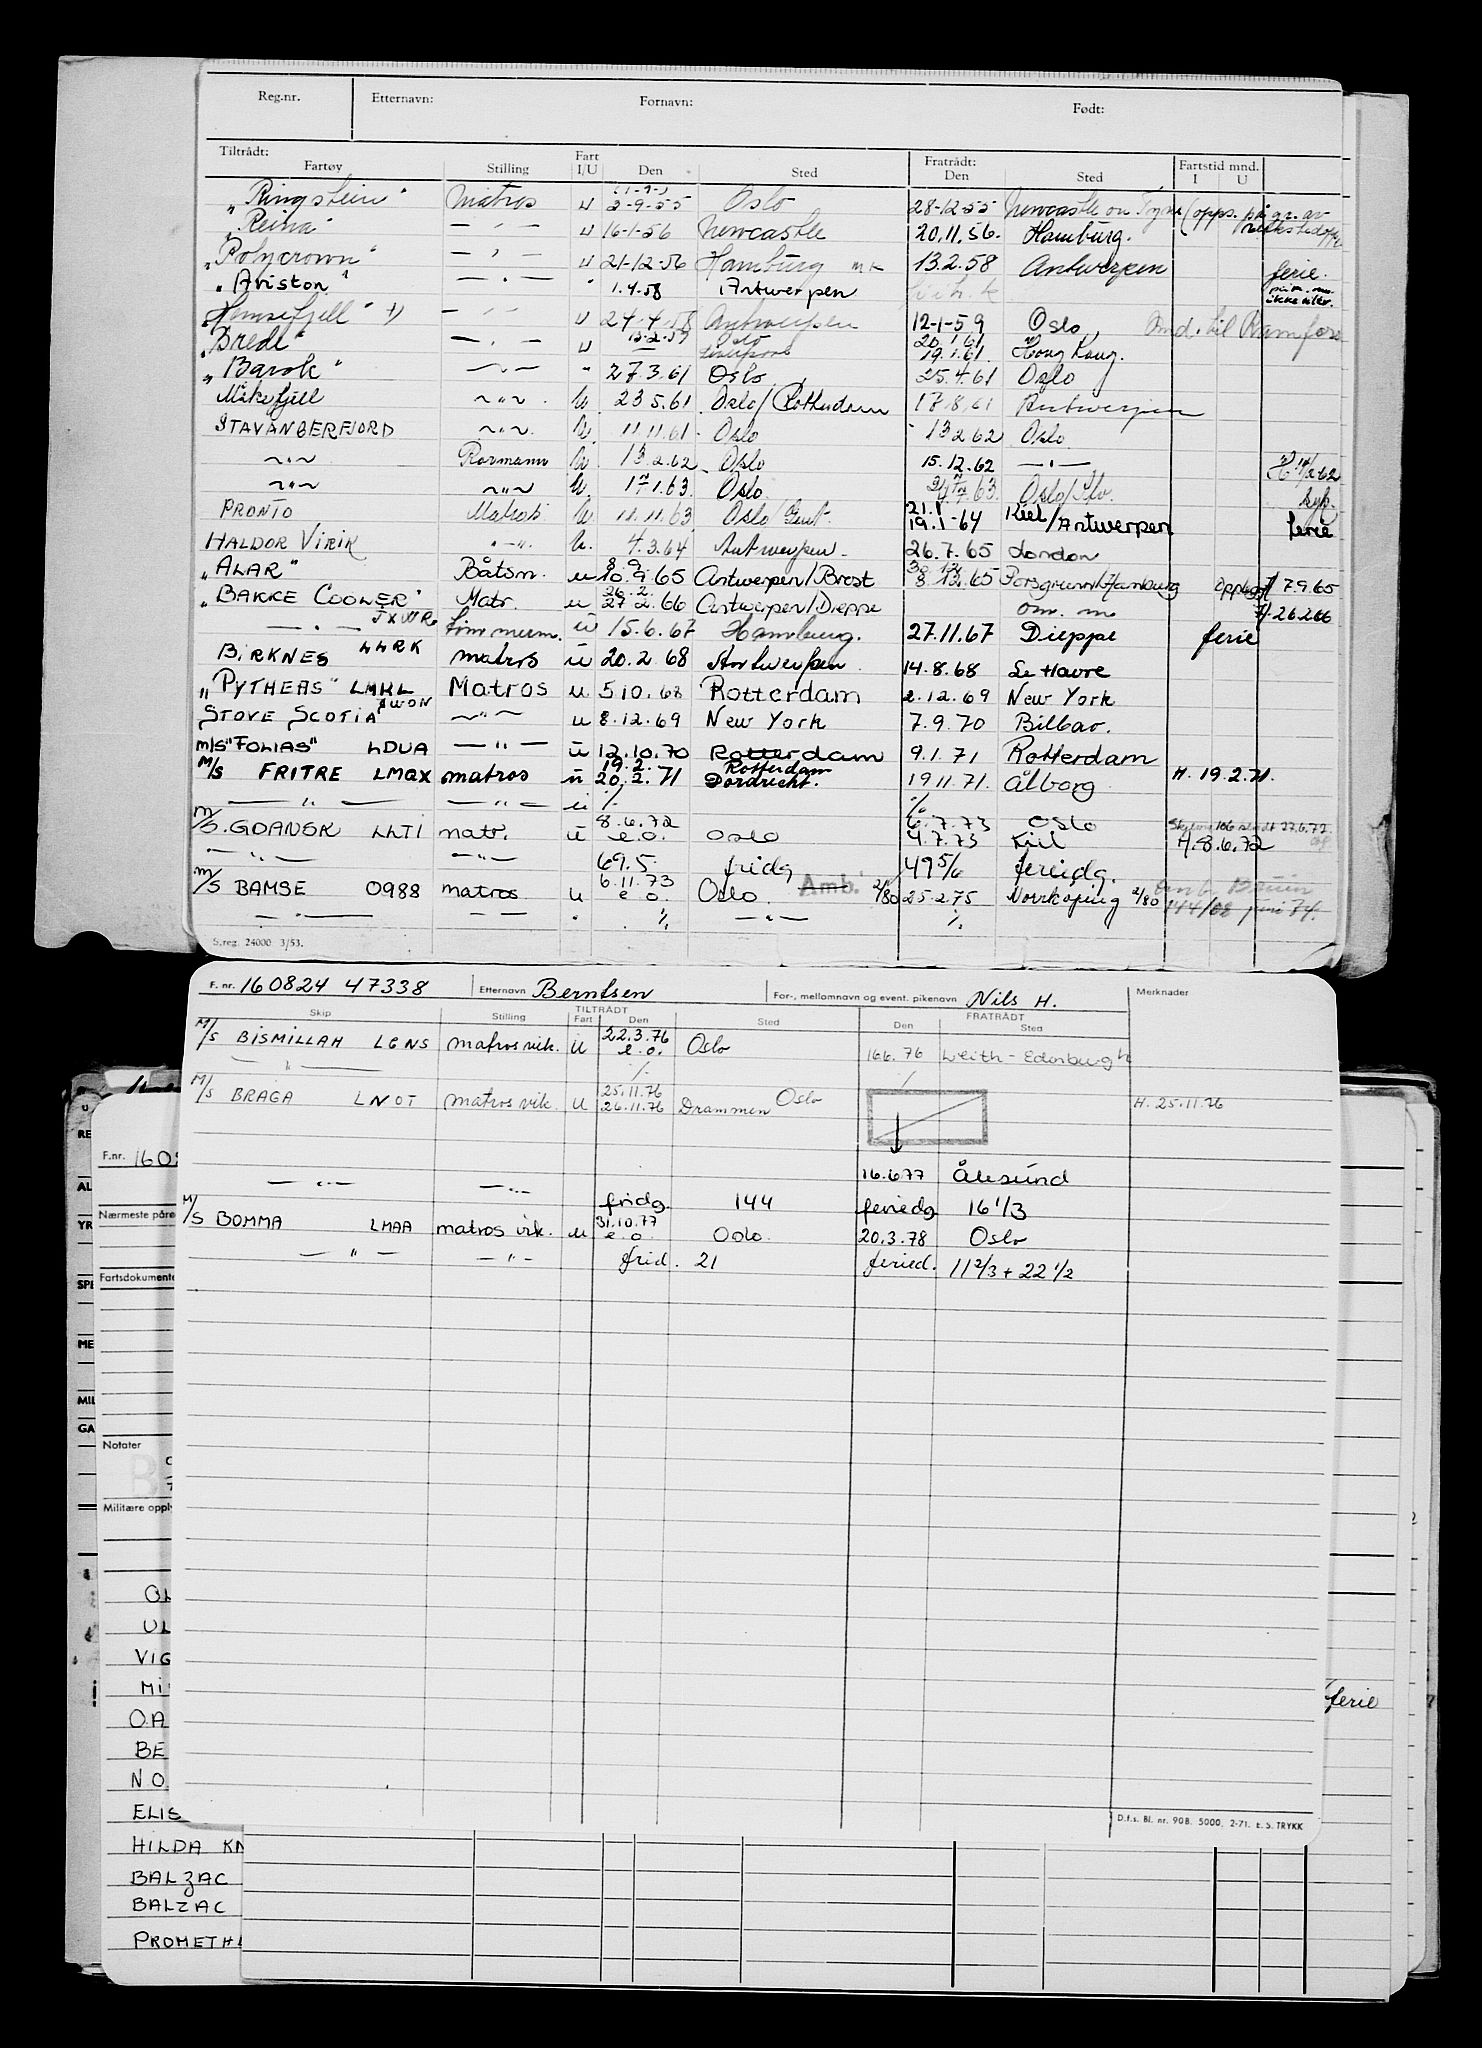 Reg.nr. Etternavn: Fornavn: Født:
Tiltrådt: Fratrådt: Fartstid mnd.
Fartøy Stilling Fart I/U Den Sted Den Sted I U
"Ringstein" Matros u 2-9-55 Oslo 28-12-55 Newcastle on Tyne (opps. på gr. av
"Reina" — " — u 16-1-56 Newcastle 20.11.56. Hamburg.
"Polycrown" — " — u 21-12-56 Hamburg 13.2.58 Antwerpen ferie.
"Ariston" — " — " 1.4.58 Antwerpen
— " — u 24.4.58 Antwerpen 12-1-59 Oslo
"Brede" — " — u 13-2-59 Oslo Liverpool 20.1.61 19.1.61. Hong Kong.
"Barok" — " — " 27.3.61 Oslo 25.4.61 Oslo
Måkefjell — " — u. 23.5.61. Oslo/Rotterdam 17.8.61 Antwerpen
STAVANGERFJORD — " — u. 11.11.61. Oslo 13.2.62 Oslo
— " — Rormann u. 13.2.62. Oslo 15.12.62 — " —
— " — — " — u. 1.63. Oslo. 63. Oslo
PRONTO Matros u. 11.11.63 Oslo/Gent. 21.1 19.1-64 Kiel/Antwerpen ferie
HALDOR VIRIK — " — u. 4.3.64 Antwerpen. 26.7.65 London
"ALAR" Båtsm. u 8.9. 10.9.65 Antwerpen/Brest 8.12.65 Porsgrunn/Hamburg H 7.9.65
"BAKKE COOLER" Matr. u 26.2. 27.2.66 Antwerpen/Dieppe om. m H. 26.2.66
— " — JXWR tømmerm. u 15.6.67 Hamburg. 27.11.67 Dieppe ferie
BIRKNES LLRK matros u 20.2.68 Antwerpen 14.8.68 Le Havre
"PYTHEAS" LMKL Matros u 5.10.68 Rotterdam 2.12.69 New York
STOVE SCOTIA JWON — " — u 8.12.69 New York 7.9.70 Bilbao.
m/s "FOLIAS" LDUA — " — u 12.10.70 Rotterdam 9.1.71 Rotterdam
M/S FRITRE LMQX matros u 19.2. 20.2.71 Rotterdam Dordrecht. 19.11.71. Ålborg H. 19.2.71.
— " — — " — u ./. ./.
m/s. GDANSK LLTI matr. u 8.6.72 e.o. Oslo 6.7.73 4.7.73 Oslo Kiel H. 8.6.72
— " — — " — 69.5 fridg 49 5/6 feriedg.
m/s BAMSE 0988 matros u 6.11.73 e.o. Oslo Amb. 2/80 25.2.75 Norrköping 2/80
— " — — — " ./. — " — ./.
S.reg. 24000 3/53.
F. nr. 160824 47338 Etternavn Berntsen For-, mellomnavn og event. pikenavn Nils H. Merknader
Skip Stilling TILTRÅDT Fart Den Sted FRATRÅDT Den Sted
M/S BISMILLAH LGNS matros vik. u 22.3.76 e.o. Oslo 16.6.76 Leith - Edenburgh
— " — ./. /
M/S BRAGA LNOT matros vik. u 25.11.76 26.11.76 Drammen Oslo H. 25.11.76
— " — — " — 16.6.77 Ålesund
fridg. 144 feriedg 16 1/3
M/S BOMMA LMAA matros vik. u 31.10.77 e.o. Oslo. 20.3.78 Oslo
— " — — " — frid. 21 feried. 11 2/3 + 22 1/2
D.f.s. Bl. nr. 90B. 5000. 2-71. E.S. TRYKK
F.nr. 1608
Nærmeste påre
Fartsdokumente
Notater
Militære opply
RE
AL
YR
SPE
ME
MIL
GA
OL
UL
VIG
MI
O.A
BE
NO
ELIS
HILDA KN
BALZAC
BALZAC
PROMETHE
ferie